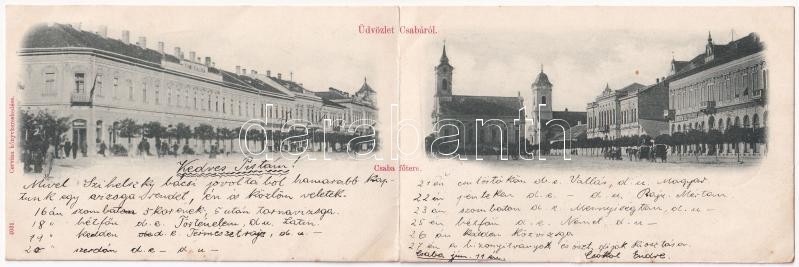 Üdvözlet Csabáról.
Corvina könyvkereskedése.
darabanth
Csaba főtere.
Kedves Pistám!
Mivel Szihelszky bácsi jóvoltából hamarabb kap-
tunk egy vizsga rendet, én is közlöm veletek.
16án szombaton 3 kor ének, 5 után tornavizsga.
18 " hétfőn d.e. Történelem, d.u. Latin.
19 " kedden d.e. Természetrajz, d.u. —
20 " szerdán d.e. — d.u. —
21 én csütörtökön d.e. Vallás, d.u. Magyar.
22 én pénteken d.e. — d.u. Rajz. Mértan
23 án szombaton d.e. Mennyiségtan, d.u. —
25 én hétfőn d.e. Német, d.u. —
26 án kedden Közvizsga
27 én a bizonyítványok és ösztöndíjak kiosztása.
Csaba jun. 11 én
Endre.